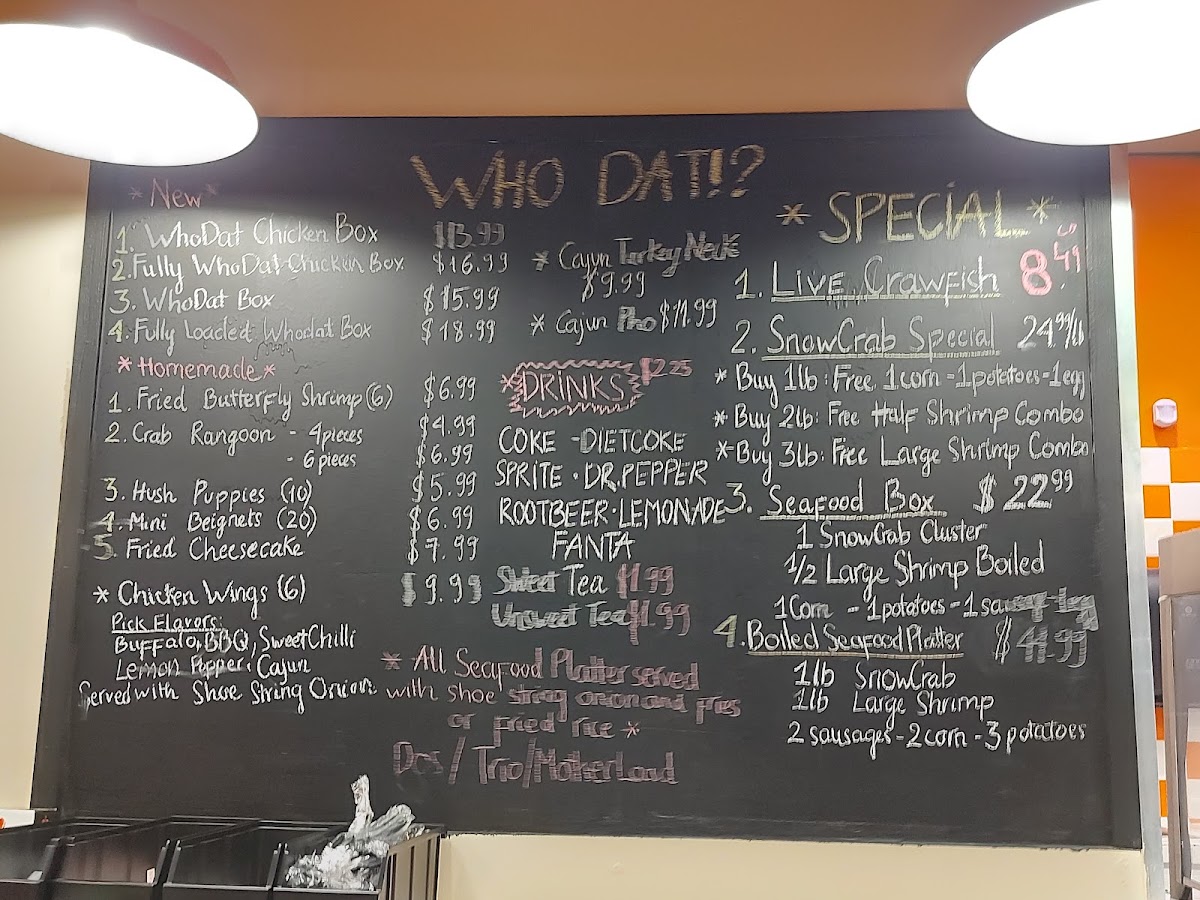 WHO DAT!?
*New*
1. WhoDat Chicken Box $13.99
2. Fully WhoDat Chicken Box $16.99
3. WhoDat Box $15.99
4. Fully Loaded Whodat Box $18.99
*Homemade*
1. Fried Butterfly Shrimp (6) $6.99
2. Crab Rangoon - 4 pieces $4.99
- 6 pieces $6.99
3. Hush Puppies (10) $5.99
4. Mini Beignets (20) $6.99
5. Fried Cheesecake $7.99
* Chicken Wings (6) $9.99
Pick Flavors:
Buffalo, BBQ, Sweet Chilli
Lemon Pepper, Cajun
Served with Shoe String Onion
* Cajun Turkey Neck
$9.99
* Cajun Pho $11.99
*DRINKS $2.25
COKE - DIET COKE
SPRITE · DR. PEPPER
ROOTBEER · LEMONADE
FANTA
Sweet Tea $1.99
Unsweet Tea $1.99
* All Seafood Platter served
with shoe string onion and fries
or fried rice *
Dos / Trio / MotherLoad
* SPECIAL *
1. Live Crawfish 8.49
2. SnowCrab Special 24.99/lb
* Buy 1lb: Free 1corn - 1potatoes - 1egg
* Buy 2lb: Free Half Shrimp Combo
* Buy 3lb: Free Large Shrimp Combo
3. Seafood Box $22.99
1 SnowCrab Cluster
1/2 Large Shrimp Boiled
1Corn - 1potatoes - 1 sausage
4. Boiled Seafood Platter
1lb SnowCrab
1lb Large Shrimp
2 sausages - 2 corn - 3 potatoes